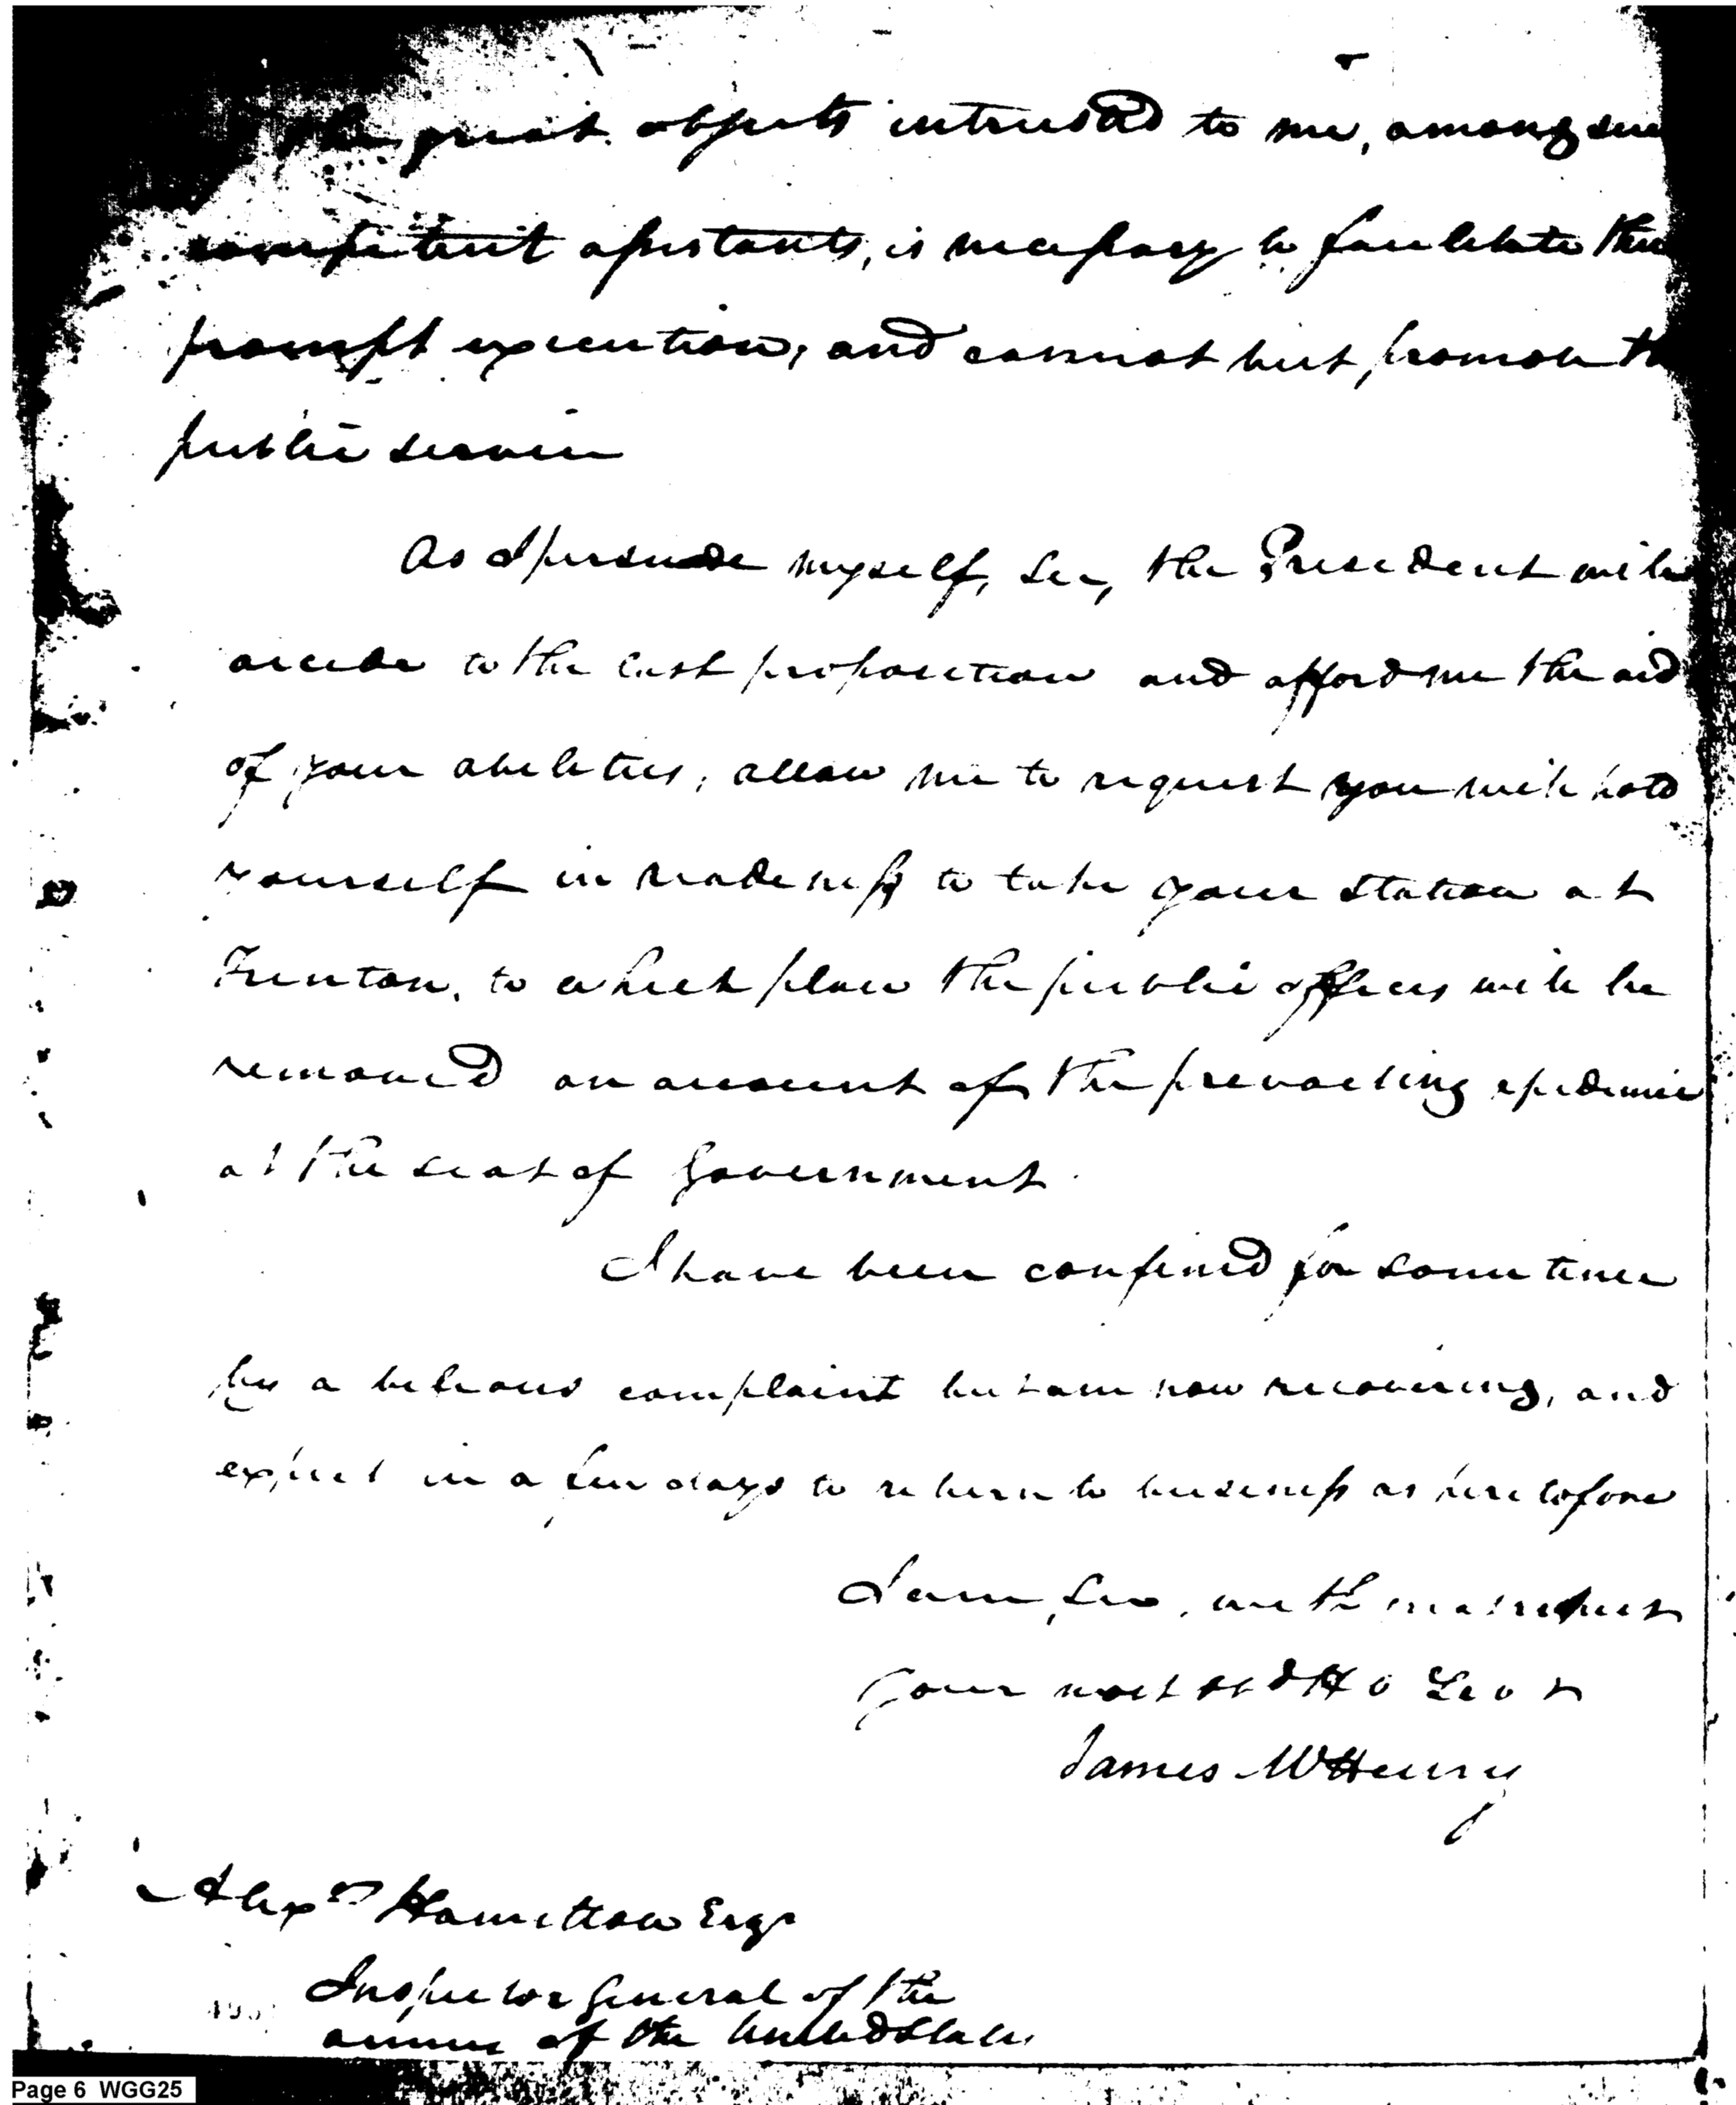 the great objects intrusted to me, among such
competent assistants, is necessary to facilitate their
prompt execution, and cannot but promote the
public service
As I persuade myself, Sir, the President will
accede to the last proposition and afford me the aid
of your abilities, allow me to request you will hold
yourself in readiness to take your station at
Trenton, to which place the public offices will be
removed on account of the prevailing epidemic
at the seat of Government.
I have been confined for some time
by a bilious complaint but am now recovering, and
expect in a few days to return to business as heretofore
I am, Sir, with great respect
your most obd Ho Servt
James McHenry
Alexr Hamilton Esqr
Inspector General of the
armies of the United States
Page 6 WGG25